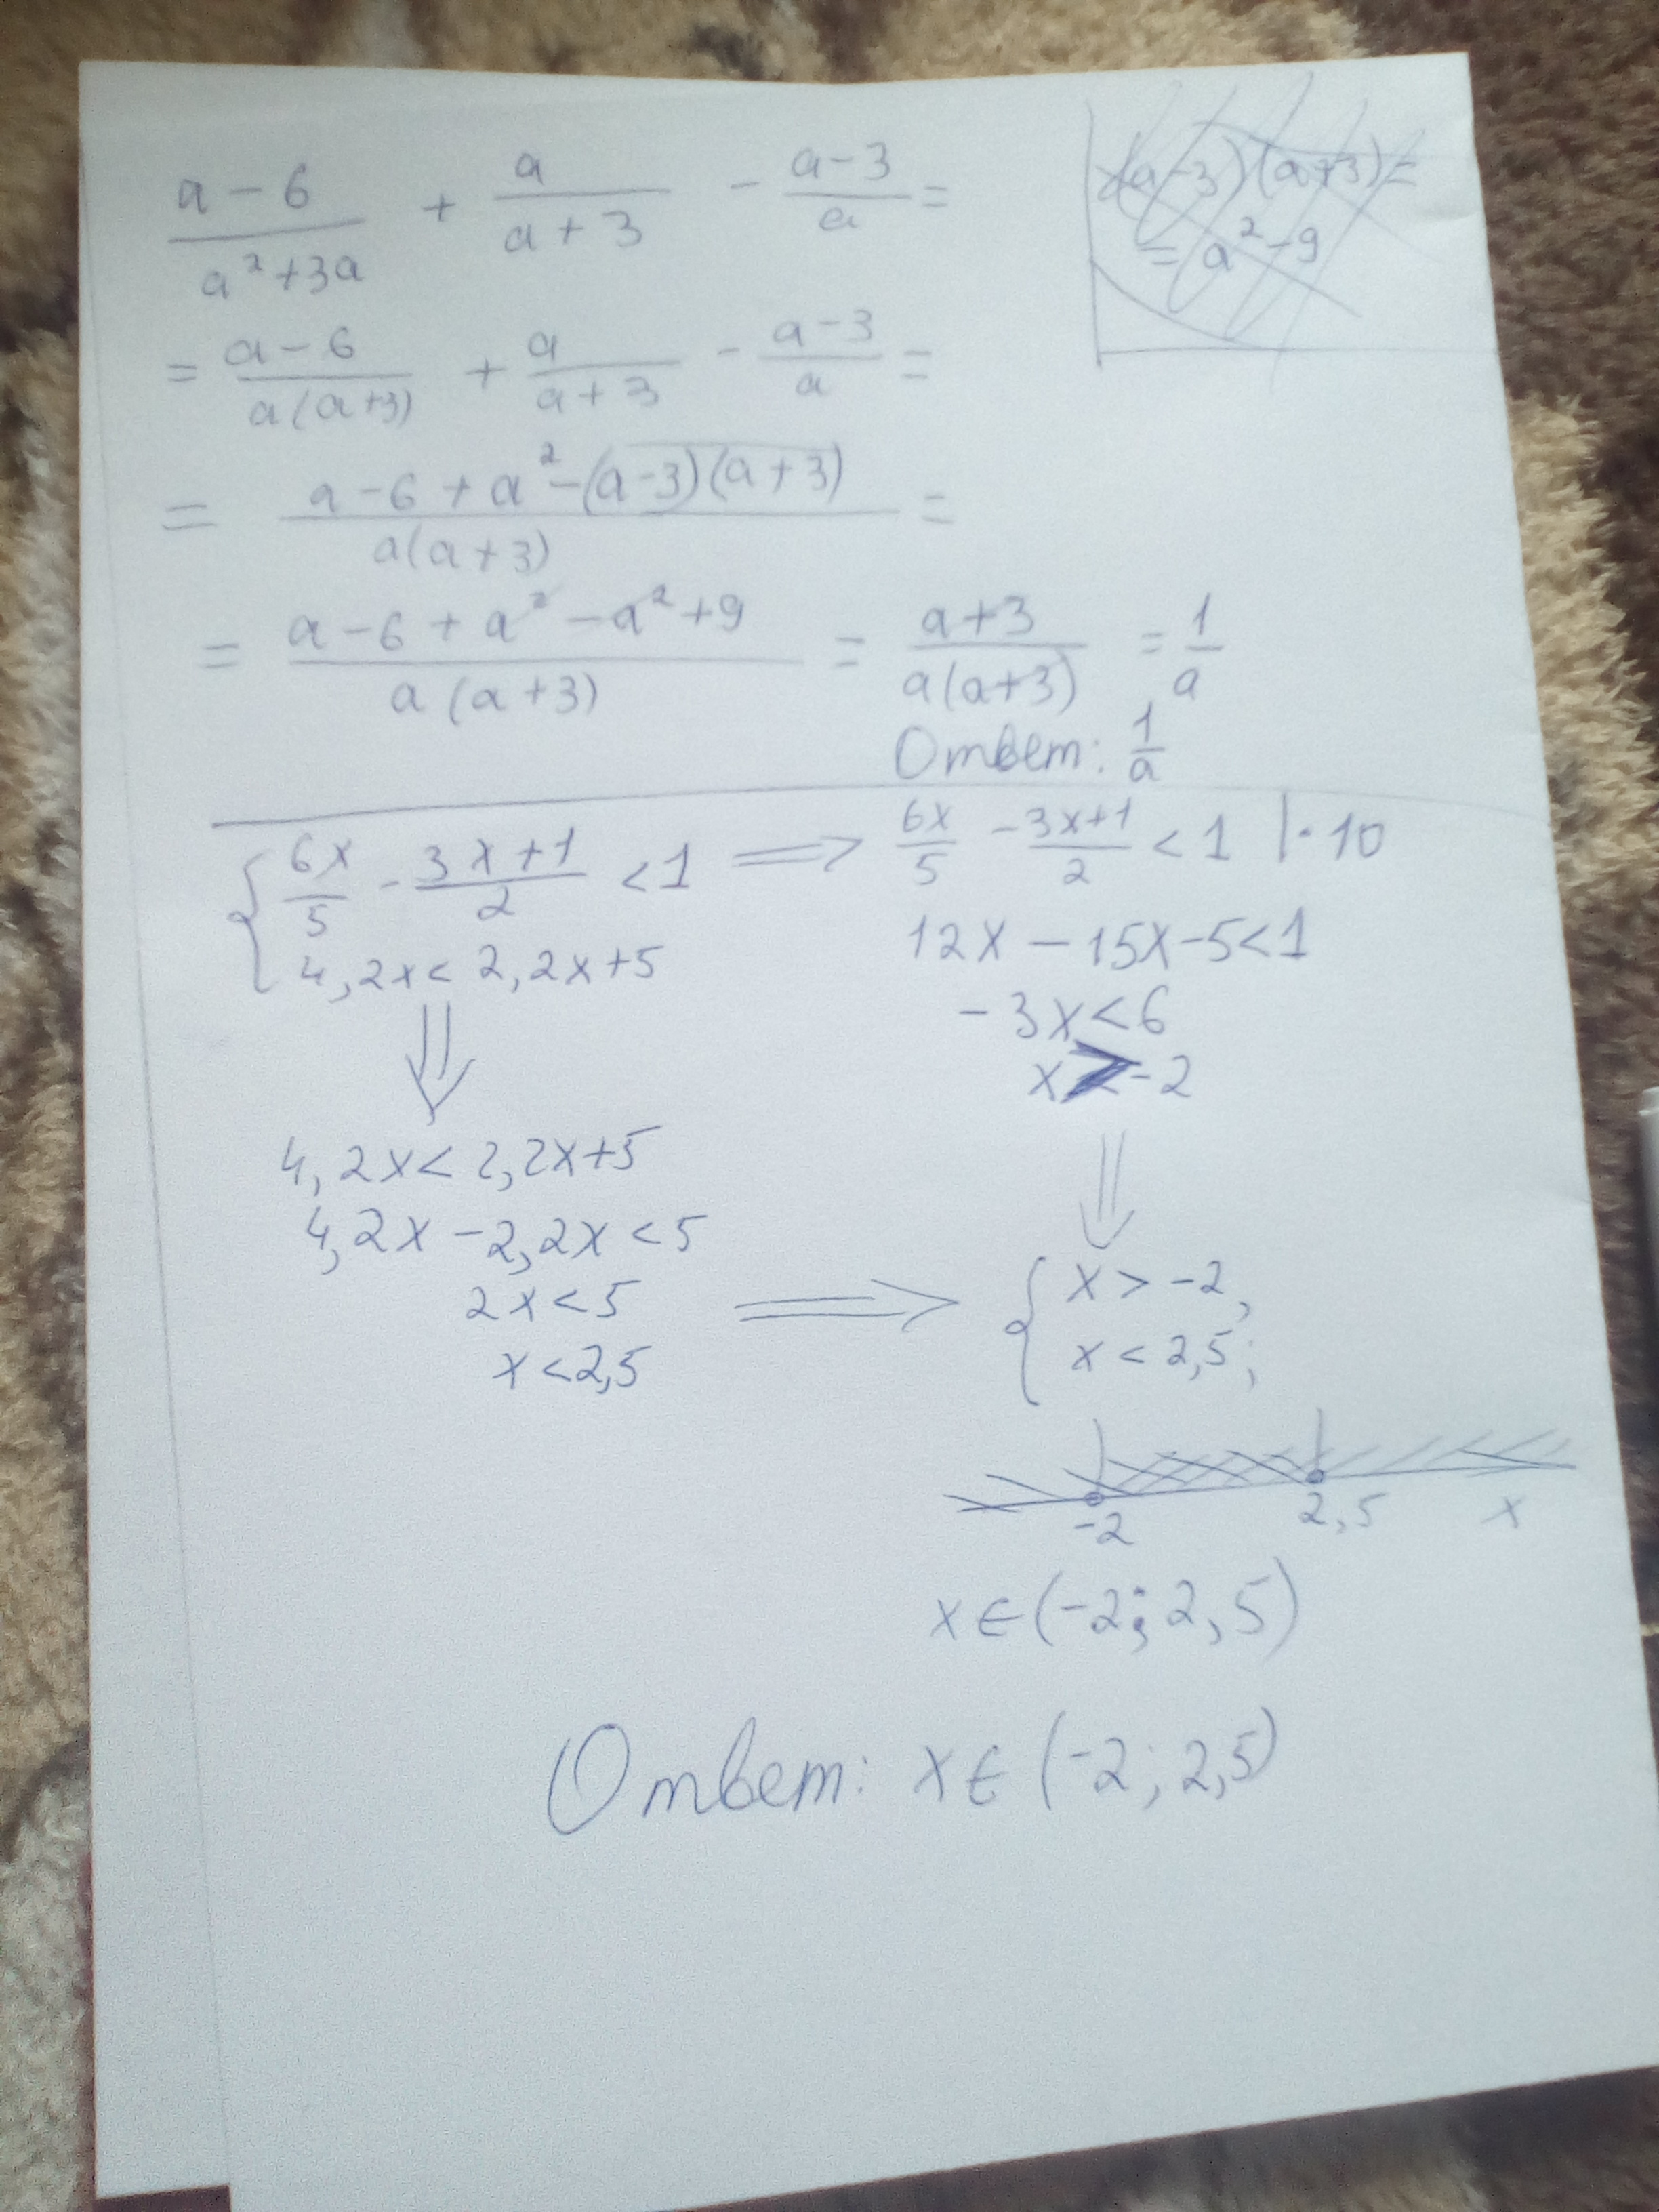 (a-3)(a+3)=
= a² - 9
(a-6)/(a²+3a) + a/(a+3) - (a-3)/a =
= (a-6)/(a(a+3)) + a/(a+3) - (a-3)/a =
= (a-6+a²-(a-3)(a+3))/(a(a+3)) =
= (a-6+a²-a²+9)/(a(a+3)) = (a+3)/(a(a+3)) = 1/a
Ответ: 1/a
{ 6x/5 - (3x+1)/2 < 1 ⟹ 6x/5 - (3x+1)/2 < 1 | · 10
4,2x < 2,2x+5
12x - 15x - 5 < 1
-3x < 6
x > -2
⇓
4,2x < 2,2x+5
4,2x - 2,2x < 5
2x < 5
x < 2,5
⟹
⇓
{ x > -2,
x < 2,5;
-2 2,5 x
x ∈ (-2; 2,5)
Ответ: x ∈ (-2; 2,5)